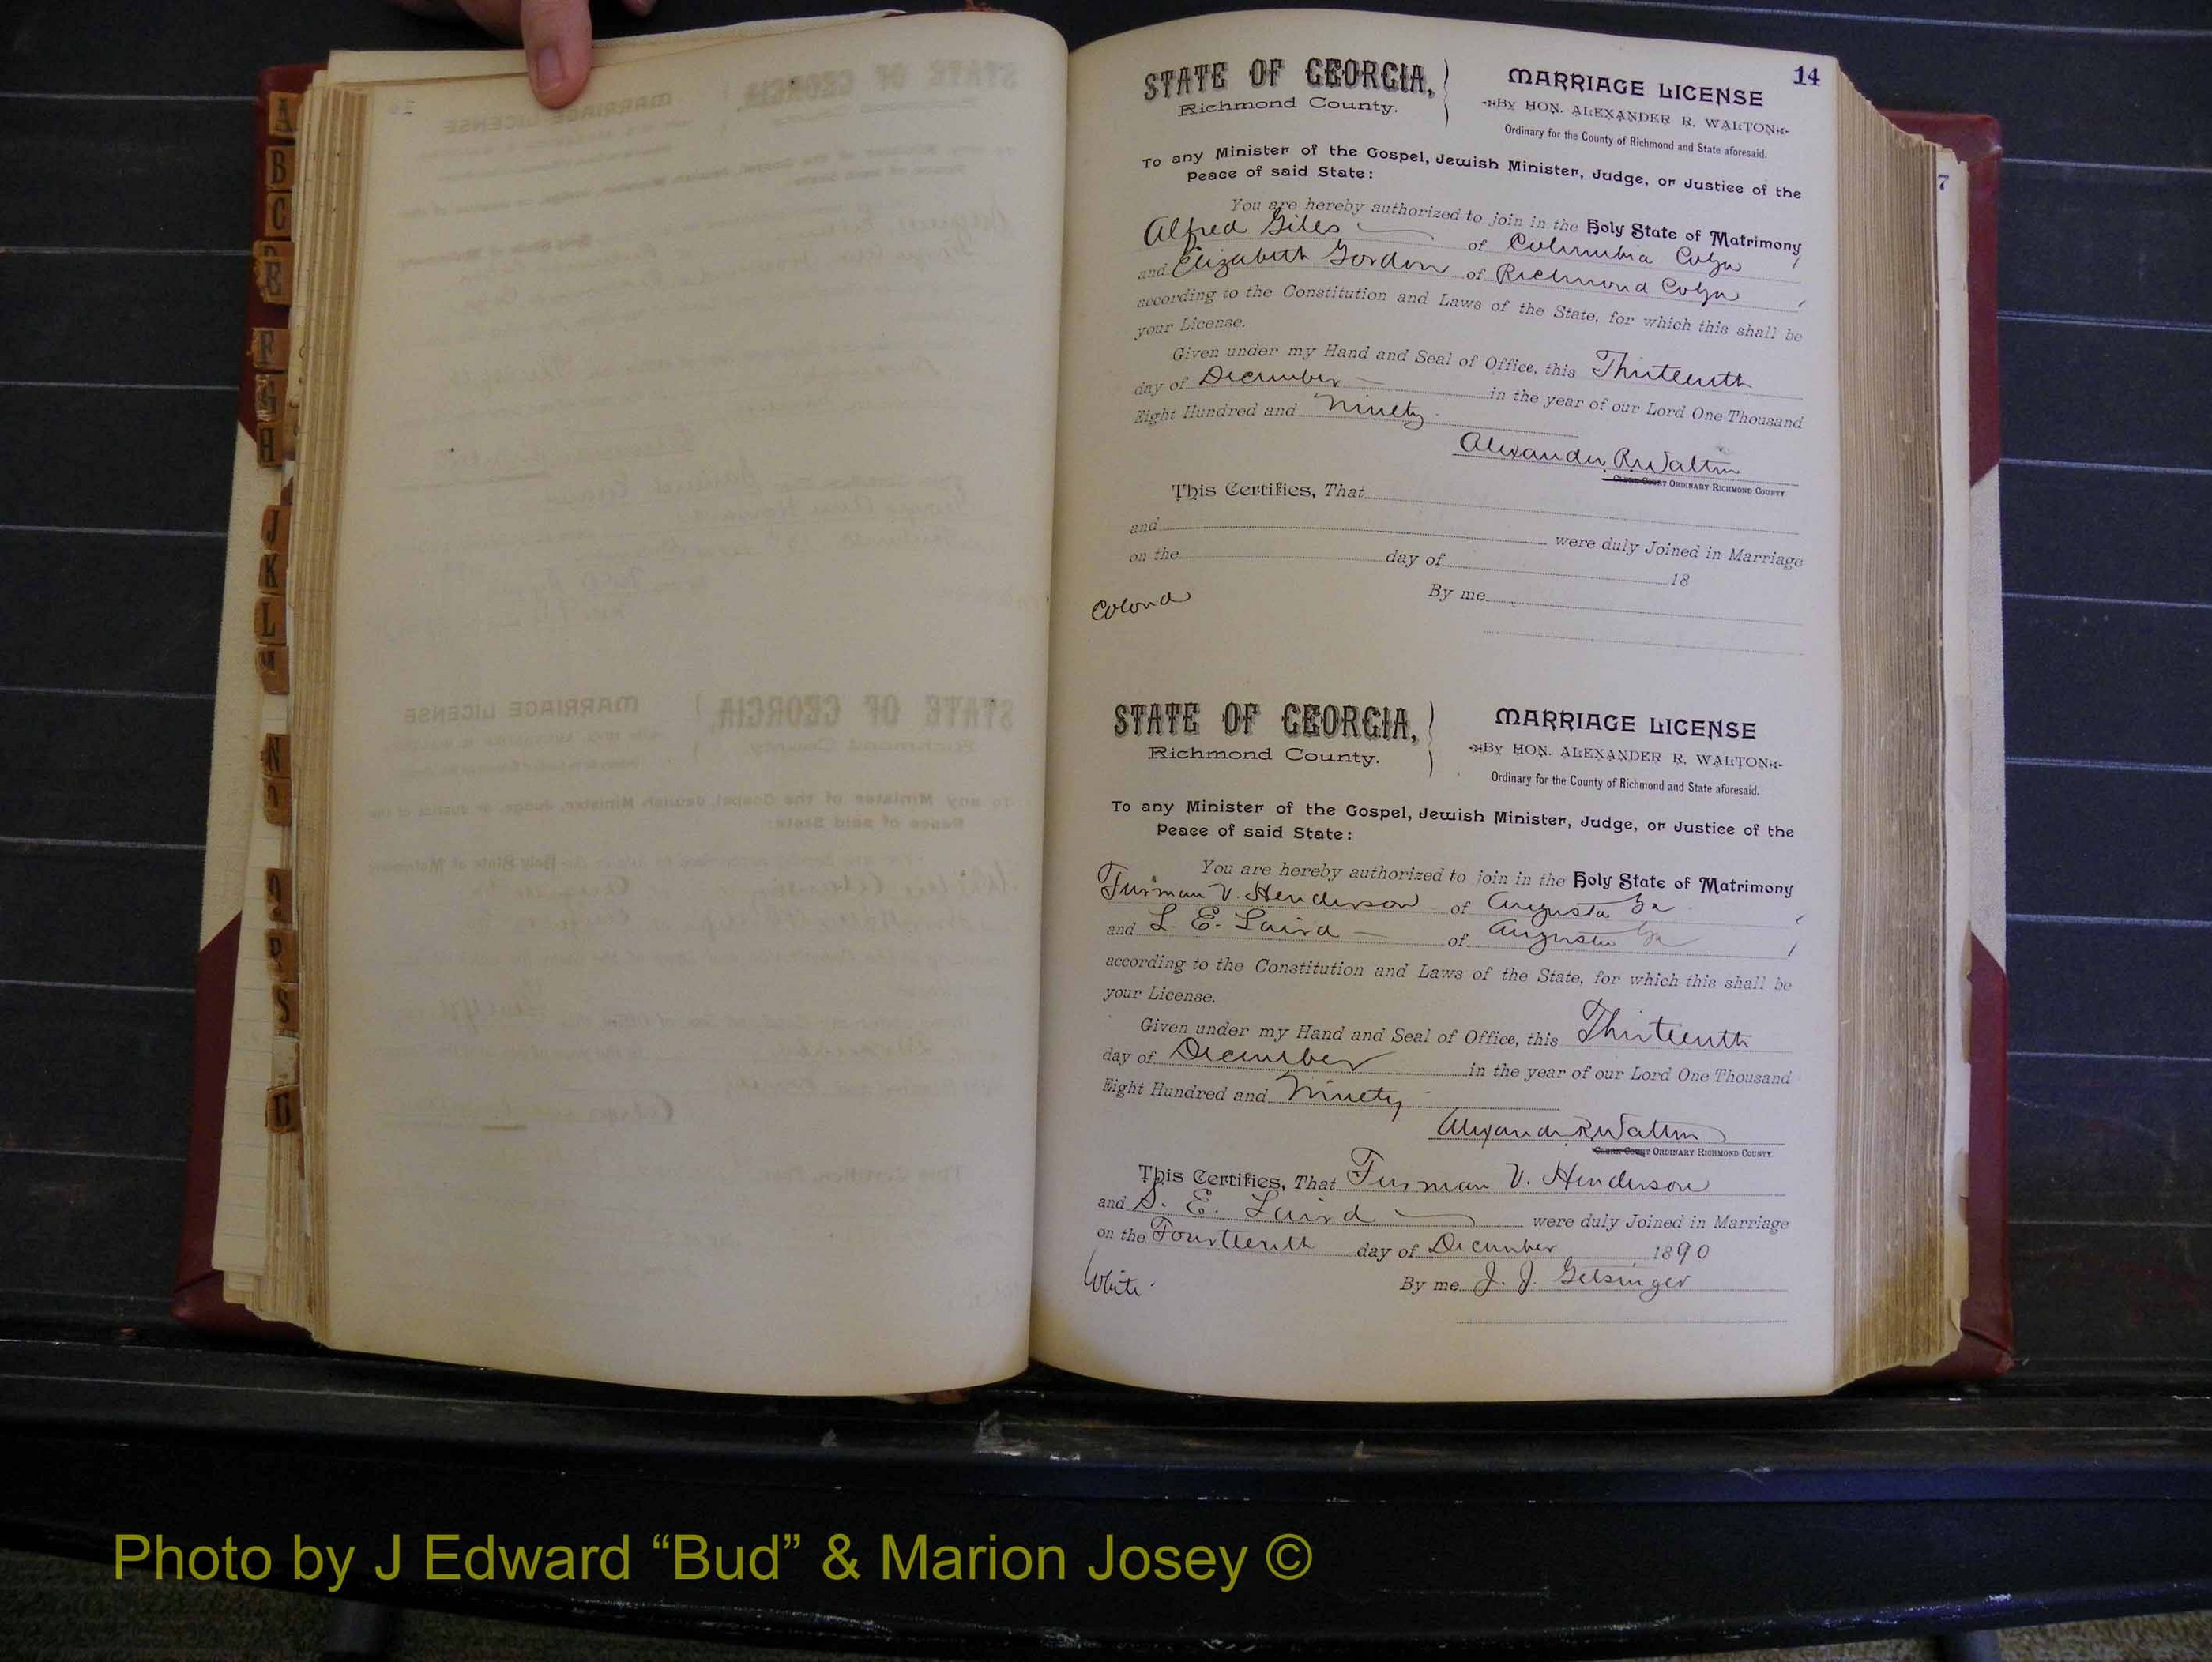 14
STATE OF GEORGIA,
Richmond County.
MARRIAGE LICENSE
By HON. ALEXANDER R. WALTON
Ordinary for the County of Richmond and State aforesaid.
To any Minister of the Gospel, Jewish Minister, Judge, or Justice of the
Peace of said State:
You are hereby authorized to join in the Holy State of Matrimony
Alfred Giles of Columbia Co Ga
and Elizabeth Gordon of Richmond Co Ga
according to the Constitution and Laws of the State, for which this shall be
your License.
Given under my Hand and Seal of Office, this Thirteenth
day of December in the year of our Lord One Thousand
Eight Hundred and Ninety
Alexander R Walton
Clerk Court ORDINARY RICHMOND COUNTY.
This Certifies, That
and were duly Joined in Marriage
on the day of 18
By me
Colord
STATE OF GEORGIA,
Richmond County.
MARRIAGE LICENSE
By HON. ALEXANDER R. WALTON
Ordinary for the County of Richmond and State aforesaid.
To any Minister of the Gospel, Jewish Minister, Judge, or Justice of the
Peace of said State:
You are hereby authorized to join in the Holy State of Matrimony
Furman V. Henderson of Augusta Ga
and L. E. Laird of Augusta Ga
according to the Constitution and Laws of the State, for which this shall be
your License.
Given under my Hand and Seal of Office, this Thirteenth
day of December in the year of our Lord One Thousand
Eight Hundred and Ninety
Alexander R Walton
Clerk Court ORDINARY RICHMOND COUNTY.
This Certifies, That Furman V. Henderson
and S. E. Laird were duly Joined in Marriage
on the Fourteenth day of December 1890
By me J. J. Getsinger
White
7
A
B
C
E
F
G
H
J
K
L
M
N
O
P
S
Photo by J Edward “Bud” & Marion Josey ©